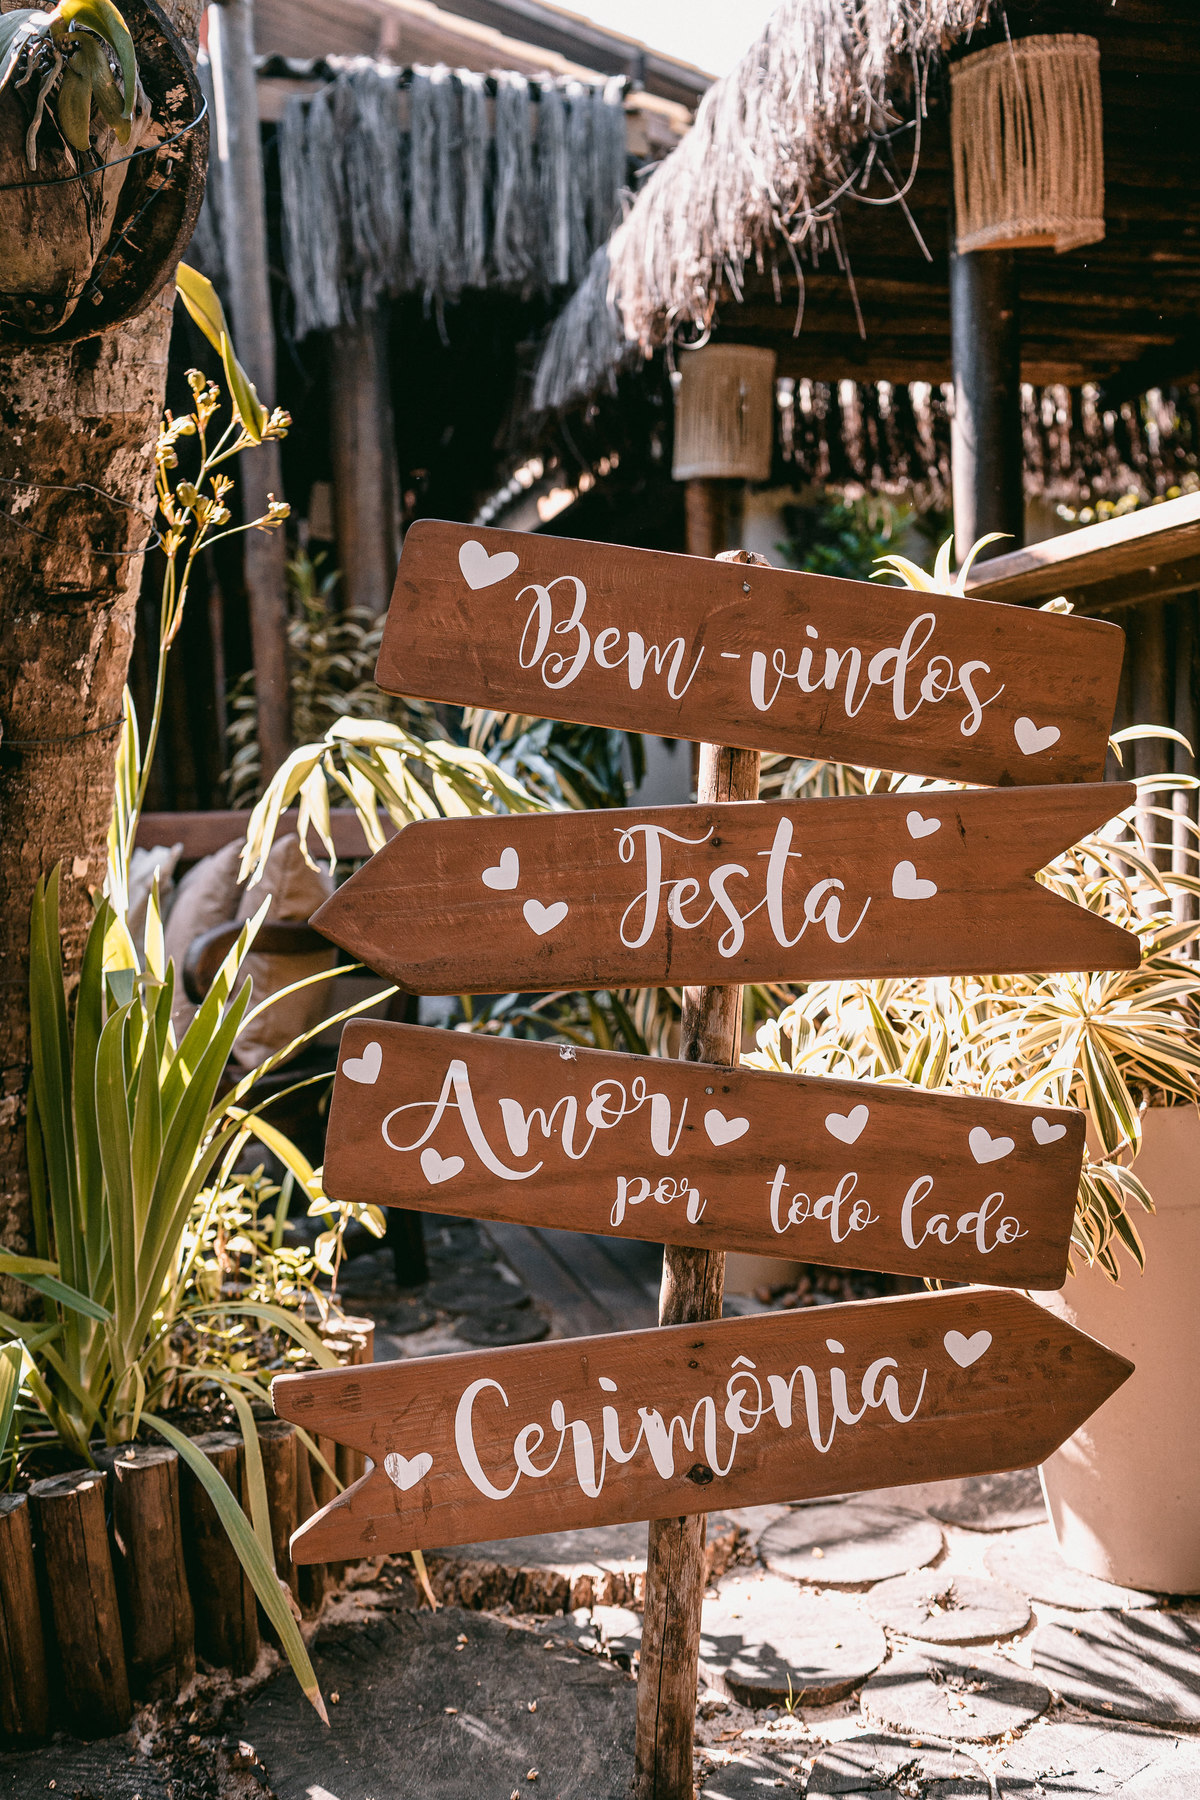 Bem-vindos
Festa
Amor
por todo lado
Cerimônia